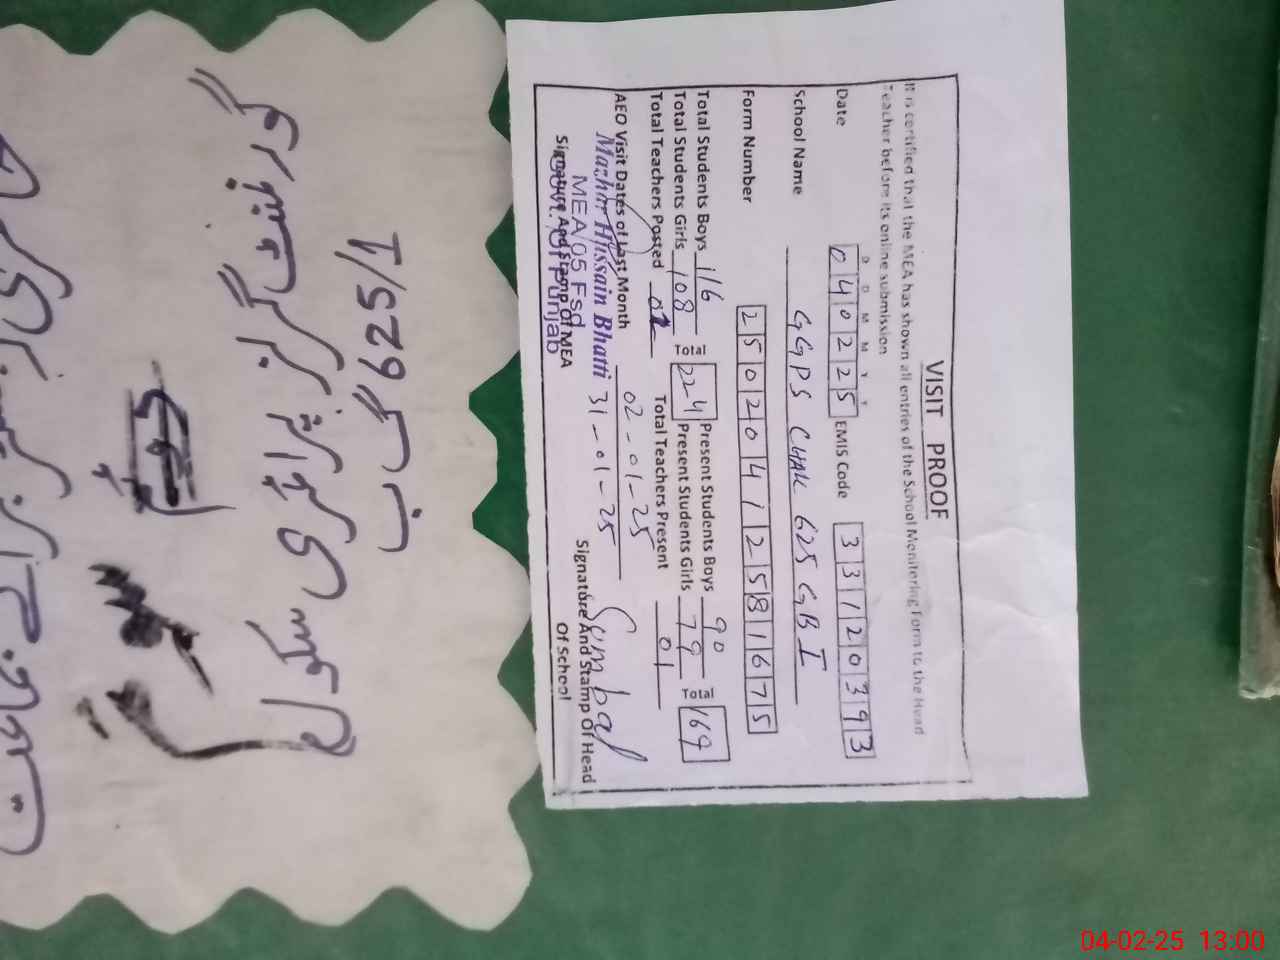 VISIT PROOF
It is certified that the MEA has shown all entries of the School Monitoring Form to the Head
Teacher before its online submission
D D M M Y Y
Date 040225 EMIS Code 33120393
School Name GGPS CHAK 625 GB I
Form Number 25020412581675
Total Students Boys 116 Total 224 Present Students Boys 90 Total 169
Total Students Girls 108 Present Students Girls 79
Total Teachers Posted 02 Total Teachers Present 01
AEO Visit Dates of Last Month 02-01-25
31-01-25
Mazhar Hussain Bhatti
MEA 05 Fsd
Govt. Of Punjab
Signature And Stamp Of MEA
Sumbal
Signature And Stamp Of Head
Of School
625/1 گ ب
گورنمنٹ گرلز پرائمری سکول
04-02-25 13:00